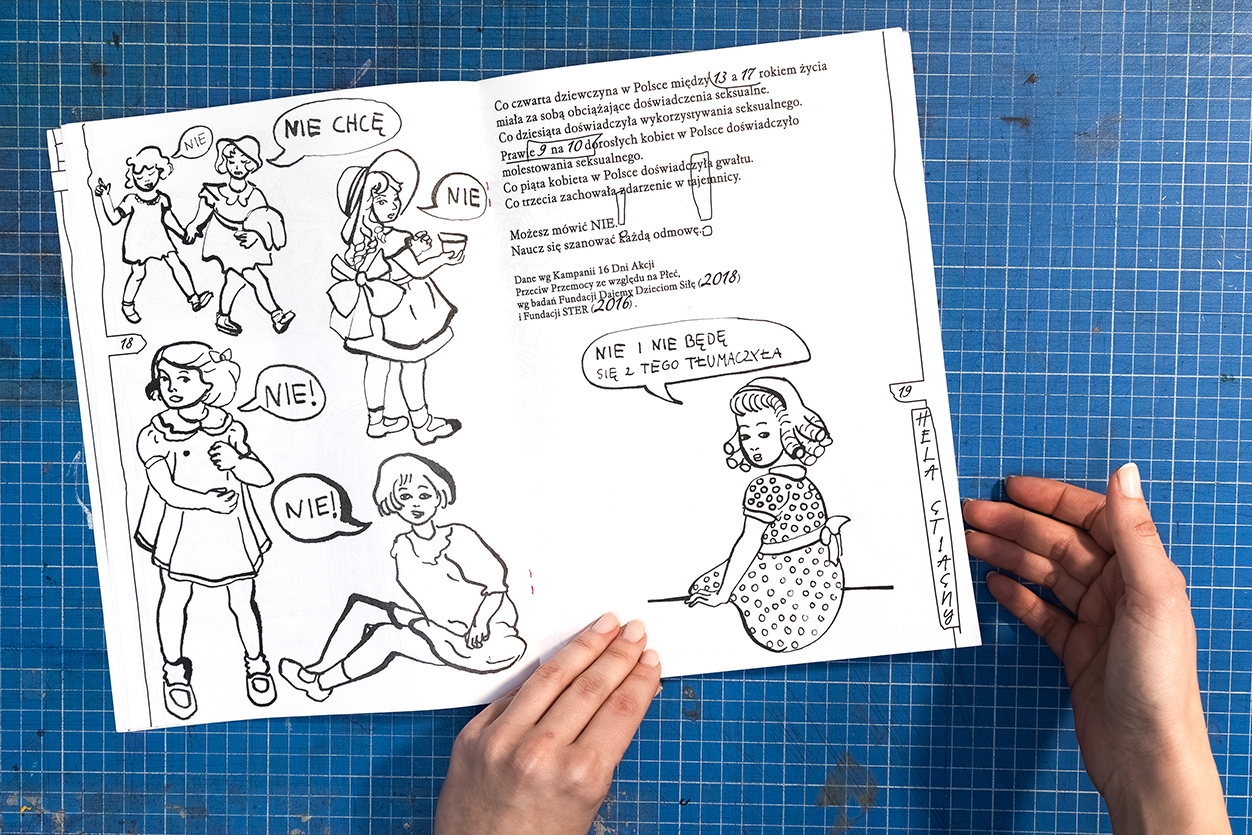 NIE
NIE CHCĘ
NIE
18
NIE!
NIE!
Co czwarta dziewczyna w Polsce między 13 a 17 rokiem życia
miała za sobą obciążające doświadczenia seksualne.
Co dziesiąta doświadczyła wykorzystywania seksualnego.
Prawie 9 na 10 dorosłych kobiet w Polsce doświadczyło
molestowania seksualnego.
Co piąta kobieta w Polsce doświadczyła gwałtu.
Co trzecia zachowała zdarzenie w tajemnicy.
Możesz mówić NIE.
Naucz się szanować każdą odmowę.
Dane wg Kampanii 16 Dni Akcji
Przeciw Przemocy ze względu na Płeć,
wg badań Fundacji Dajemy Dzieciom Siłę (2018)
i Fundacji STER (2016).
NIE I NIE BĘDĘ
SIĘ Z TEGO TŁUMACZYŁA
19
HELA STIASNY